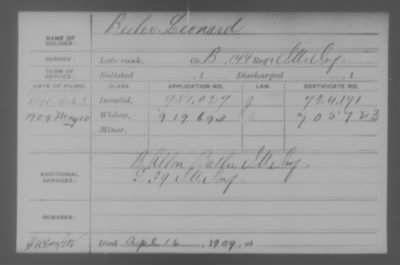 Leonard
NAME OF SOLDIER:
SERVICE: Late rank, Co. B, 144 Reg't Ill. Inf.
TERM OF SERVICE: Enlisted , 1 Discharged , 1
DATE OF FILING. CLASS APPLICATION NO. LAW CERTIFICATE NO.
Invalid,
1909 May 10 Widow, 919692 705723
Minor,
ADDITIONAL SERVICES: B Alton Batln Ill. Inf.
I 39 Ill. Inf.
REMARKS:
Died Apl 16, 1909, at